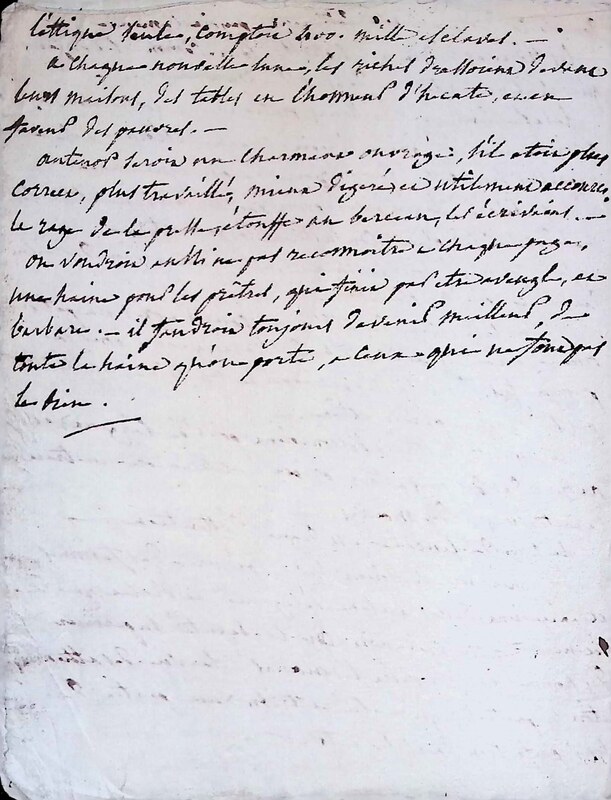 l'attique seule, comptoit 400. mille esclaves. —
a chaque nouvelle lune, les riches dressoient devant
leurs maisons, des tables en l'honneur d'hecate, et en
faveur des pauvres. —
antenor seroit un charmant ouvrage, s'il etoit plus
correct, plus travaillé, mieux digeré et utilement accourci
la rage de la presse, étouffe au berceau, les écrivains. —
on voudroit aussi ne pas reconnoitre a chaque page,
une haine pour les prêtres, qui finit par etre aveugle, et
barbare. — il faudroit toujours devenir meilleur, de
toute la haine qu'on porte, a ceux qui ne font pas
le bien.